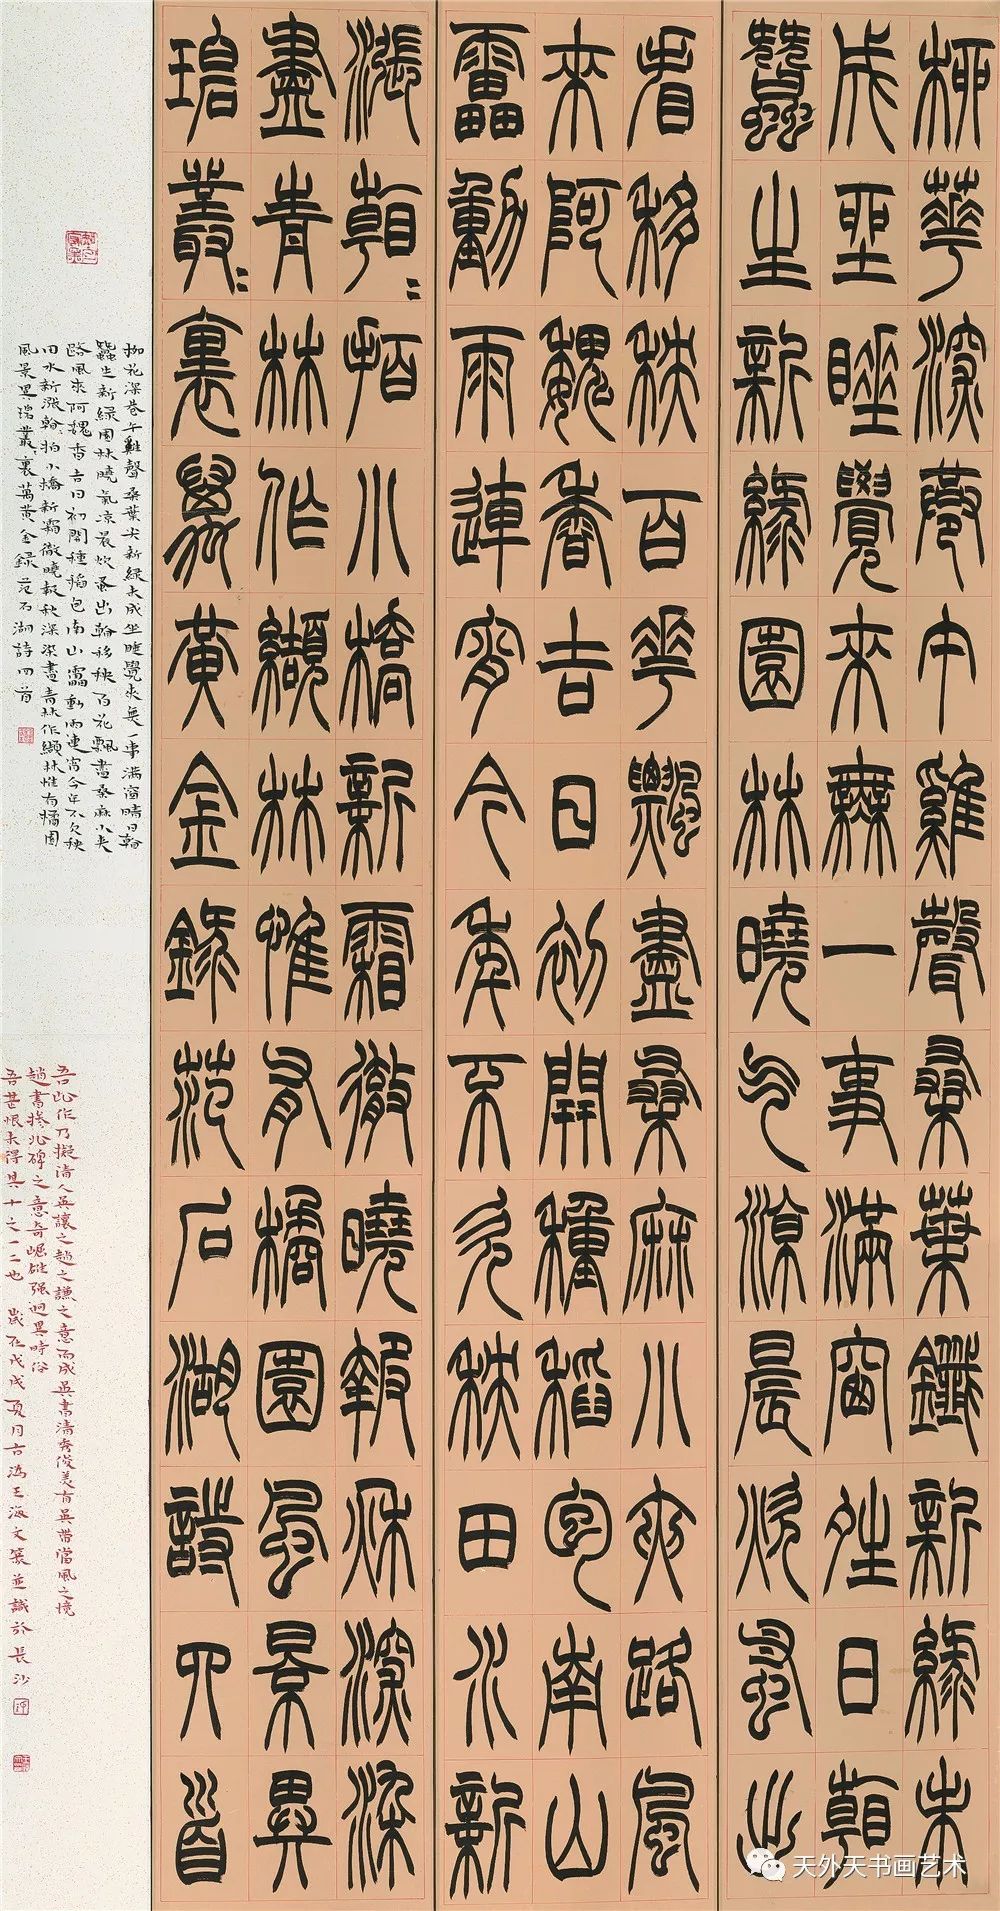 柳華深巷午雞聲桑葉鑯新綠未
成坐睡覺來無一事滿窗晴日看
蠶生新綠園林曉气涼晨炊蚤出
看移秧百華飄盡桑麻小夾路風
來阿魏香吉日初開種稻包南山
靁動雨連宵今年不欠秧田水新
漲看〻拍小橋新霜徹曉報秋深染
盡青林作纈林惟有橘園風景異
碧叢〻裏萬黃金錄范石湖詩四首
柳花深巷午雞聲桑葉尖新綠未成坐睡覺來無一事滿窗晴日看
蠶生新綠園林曉氣涼晨炊蚤出看移秧百花飄盡桑麻小夾
路風來阿魏香吉日初開種稻包南山靁動雨連宵今年不欠秧
田水新漲看拍小橋新霜徹曉報秋深染盡青林作纈林惟有橘園
風景異碧叢〻裏萬黃金錄范石湖詩四首
吾此作乃擬清人吳讓之趙之謙之意而成吳書清秀俊美有吳帶當風之境
趙書摻北碑之意奇崛雄强迥異時俗
吾甚恨未得其十之一二也 歲在戊戌夏月古溈王海文篆並識於長沙
天外天书画艺术